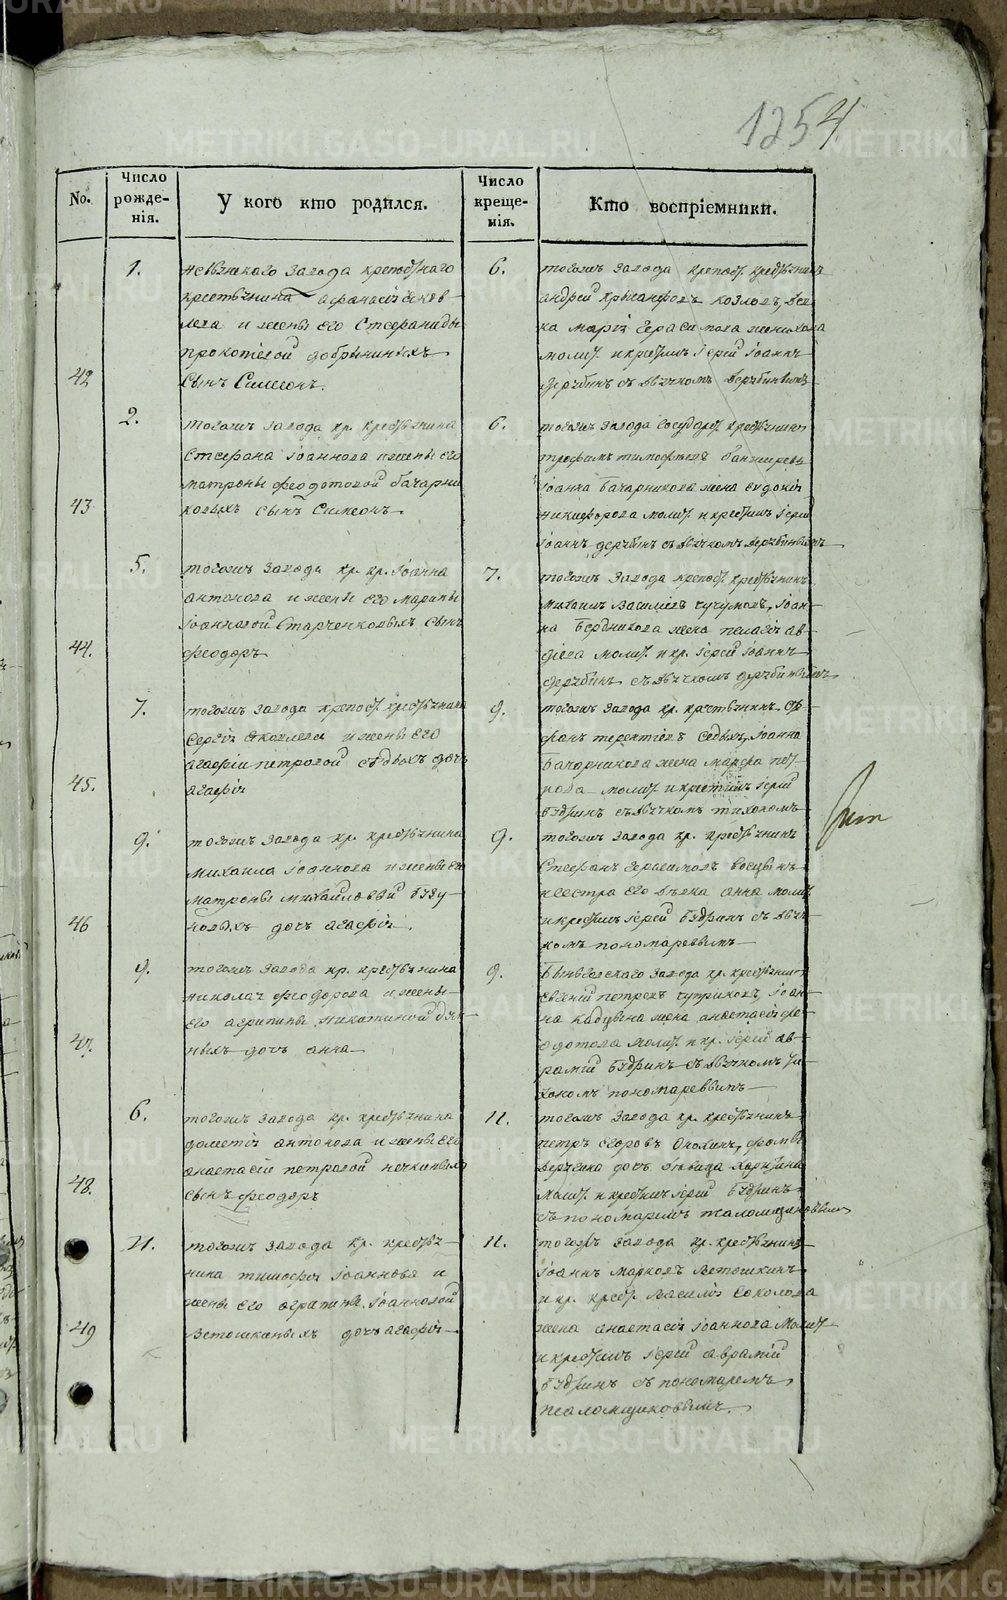 1254
No.
Число рожде-нія.
У кого кто родился.
Число креще-нія.
Кто воспріемники.
42
1.
Невьянскаго завода крепостнаго
крестьянина Афанасія Яков-
лева и жены его Стефаниды
Прокопіевой Добрыниныхъ
сынъ Симеонъ.
6.
тогожъ завода крепост. крестьянинъ
Андрей Хрисанфовъ Козловъ,
Марія Герасимова
молит. и крестилъ Іерей Іоаннъ
Дерябинъ съ дьячкомъ Дерябинымъ
43
2.
тогожъ завода кр. крестьянина
Стефана Іоаннова и жены его
Матроны Феодотовой Бачарни
ковыхъ сынъ Симеонъ.
6.
тогожъ завода государст. крестьянинъ
Трофимъ Тимофеевъ
Іоанна Бачарникова жена Евдокія
Никифорова молит. и крестилъ Іерей
Іоаннъ Дерябинъ съ дьячкомъ Дерябинымъ
44.
5.
тогожъ завода кр. кр. Іоанна
Антонова и жены его Марины
Іоанновой Старченковыхъ сынъ
Феодоръ
7.
тогожъ завода крепост. крестьянинъ
Михаилъ Василіевъ Чучумовъ, Іоан-
на Бердникова жена Пелагія Ав-
діева молит. и кр. Іерей Іоаннъ
Дерябинъ съ дьячкомъ Дерябинымъ
45.
7.
тогожъ завода крепост. крестьянина
Сергія Яковлева и жены его
Агафіи Петровой Седыхъ дочь
Агафія
9.
тогожъ завода кр. крестьянинъ
Терентіевъ Седыхъ, Іоанна
Бачарникова жена Марфа
молит. и крестилъ Іерей
Будринъ съ дьячкомъ Тихономъ
46
9.
тогожъ завода кр. крестьянина
Михаила Іоаннова и жены его
Матроны Михайловой
дочь Агафія.
9.
тогожъ завода кр. крестьянинъ
Стефанъ Герасимовъ
и сестра его девка Анна молит.
и крестилъ Іерей Будринъ съ дьяч-
комъ Пономаревымъ
47.
9.
тогожъ завода кр. крестьянина
Николая Феодорова и жены
его Агрипины Никитиной
дочь Анна
9.
Быньговскаго завода кр. крестьянинъ
Евгеній Петровъ Чуприковъ, Іоан-
на жена Анастасія Фе-
одотова молит. и кр. Іерей Ав-
рамій Будринъ съ дьячкомъ Ти-
хономъ Пономаревымъ
48.
6.
тогожъ завода кр. крестьянина
Дометія Антонова и жены его
Анастасіи Петровой
сынъ Феодоръ
11.
тогожъ завода кр. крестьянинъ
Петръ Егоровъ Фомы
дочь девица
молит. и крестилъ Іерей Будринъ
съ пономаремъ Псаломщиковымъ
49
11.
тогожъ завода кр. крестья-
нина Тимофея Іоаннова и
жены его Агрипины Іоанновой
Ветошкиныхъ дочь Агафія
11.
тогожъ завода кр. крестьянинъ
Іоаннъ Марковъ Ветошкинъ
и кр. крест. Василія Соколова
жена Анастасія Іоаннова молит.
и крестилъ Іерей Аврамій
Будринъ съ пономаремъ
Псаломщиковымъ.